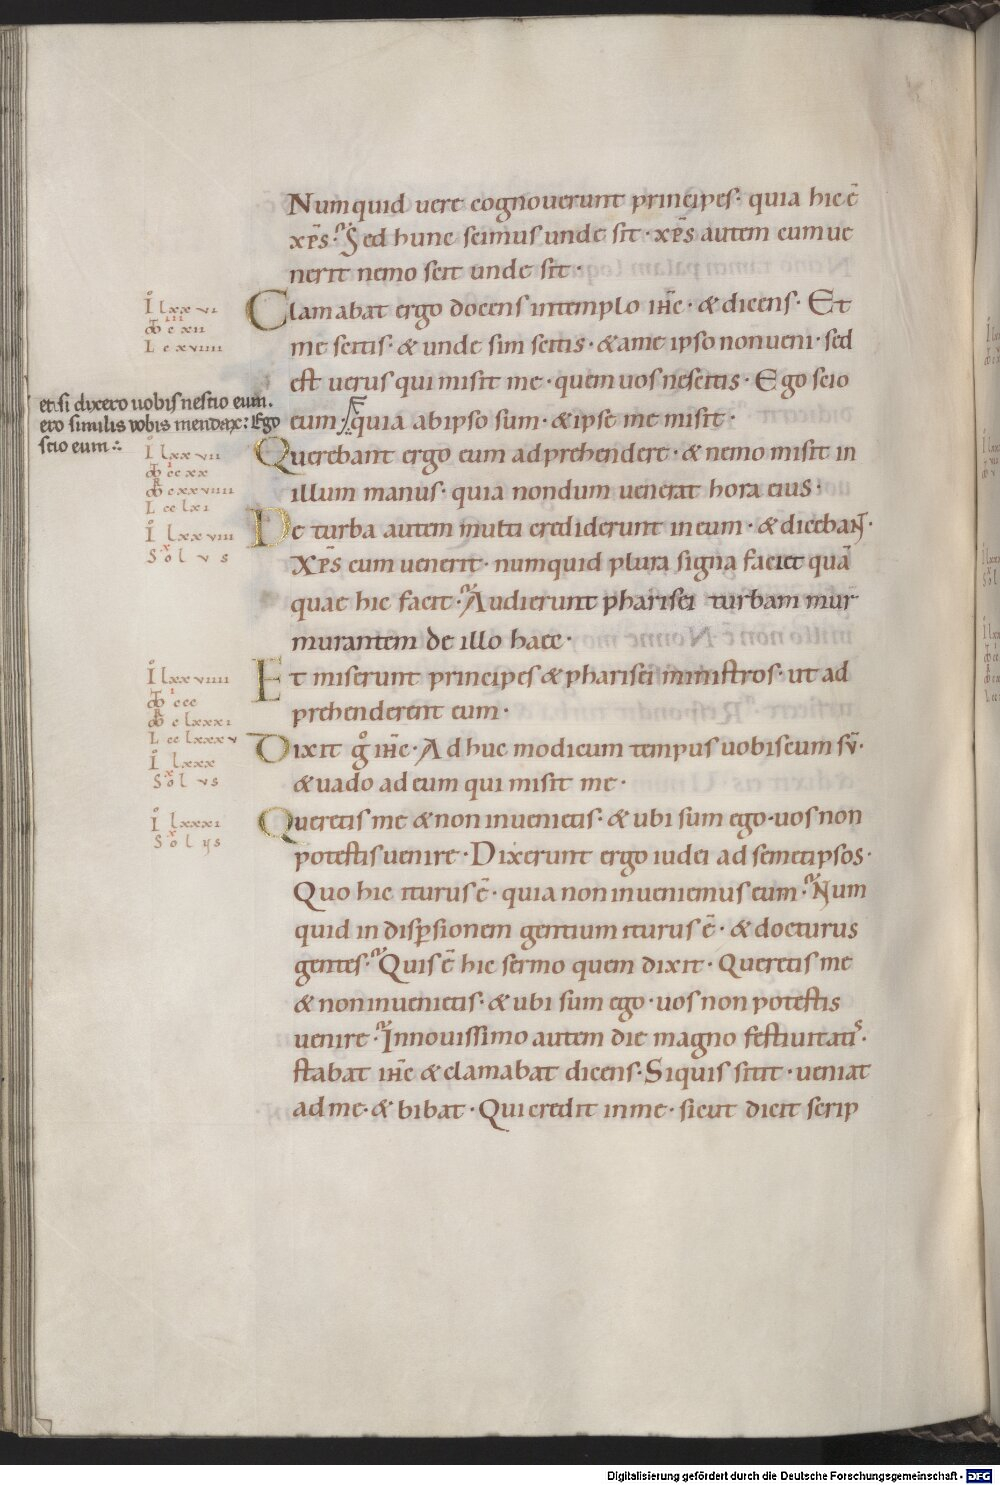 Numquid vere cognoverunt principes· quia hic ē
xp̄s· Sed hunc scimus unde sit· xp̄s autem cum ve
nerit nemo scit unde sit·
Clamabat ergo docens intemplo ihc̄· & dicens· Et
me scitis· & unde sim scitis· & ame ipso non veni· sed
est verus qui misit me· quem vos nescitis· Ego scio
eum· quia abipso sum· & ipse me misit·
Querebant ergo eum adprehendere· & nemo misit in
illum manus· quia nondum venerat hora eius·
De turba autem multi crediderunt ineum· & diceban̄·
Xp̄s cum venerit· numquid plura signa faciet quā
quae hic facit· Audierunt pharisei turbam mur
murantem de illo haec·
Et miserunt principes & pharisei ministros· ut ad
prehenderent eum·
Dixit gͦ ihc̄· Adhuc modicum tempus vobiscum sū·
& vado ad eum qui misit me·
Queretis me & non invenietis· & ubi sum ego· vos non
potestis venire· Dixerunt ergo iudei ad semetipsos·
Quo hic iturus ē· quia non inveniemus eum· Num
quid in disp̄sionem gentium iturus ē· & docturus
gentes· Quis ē hic sermo quem dixit· Queretis me
& non invenietis· & ubi sum ego· vos non potestis
venire· Innovissimo autem die magno festivitatis·
stabat ihc̄ & clamabat dicens· Siquis sitit· veniat
ad me· & bibat· Qui credit in me· sicut dicit scrip
I lxxvi
c xii
L c xviiii
et si dixero vobis nescio eum.
ero similis vobis mendax: Ego
scio eum
I lxxvii
cc xx
c xxviiii
L cc lxi
I lxxviii
Sol v s
I lxxviiii
ccc
c lxxxi
L cc lxxxv
I lxxx
Sol vs
I lxxxi
Sol ys
Digitalisierung gefördert durch die Deutsche Forschungsgemeinschaft - DFG